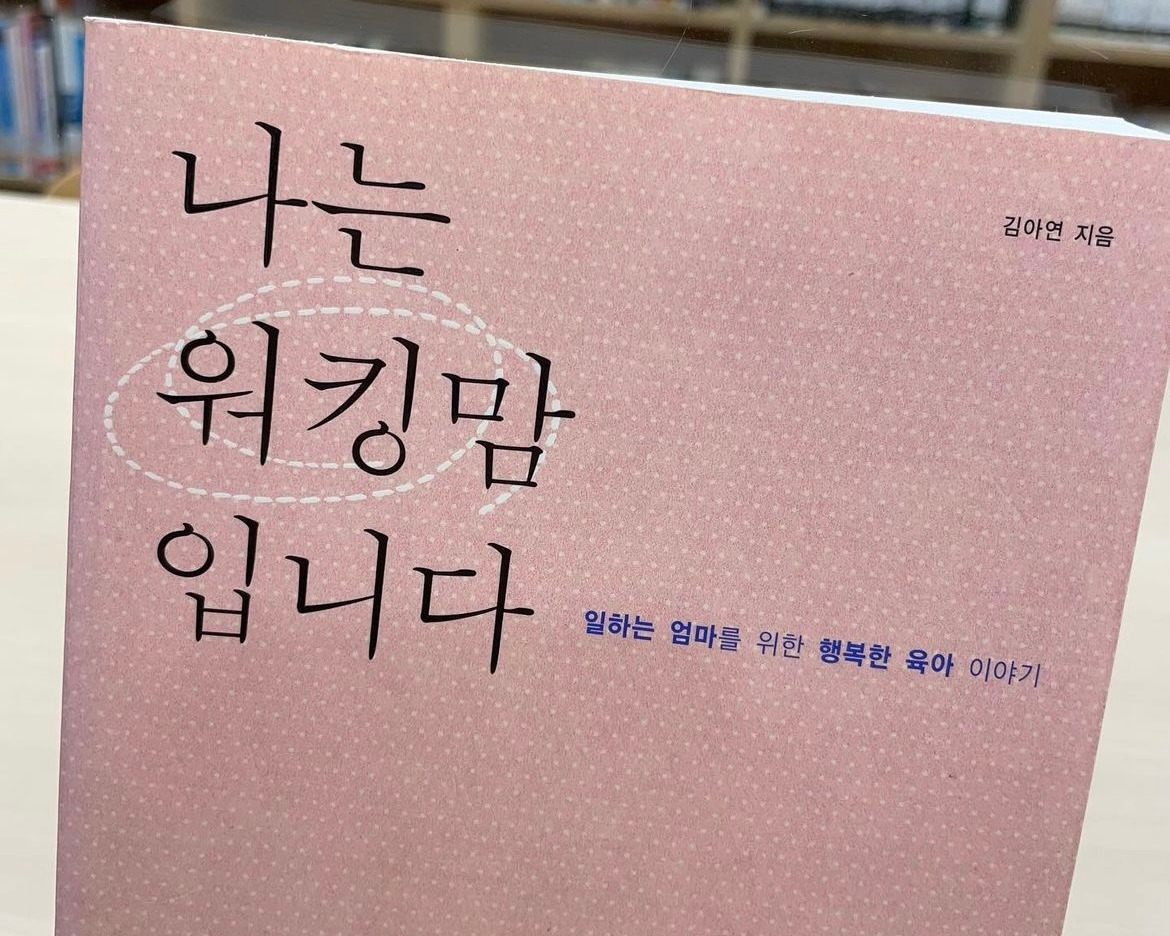 나는
워킹맘
입니다
김아연 지음
일하는 엄마를 위한 행복한 육아 이야기